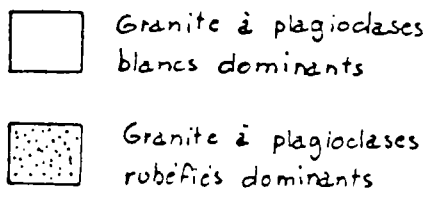 Granite à plagioclases
blancs dominants
Granite à plagioclases
rubéfiés dominants